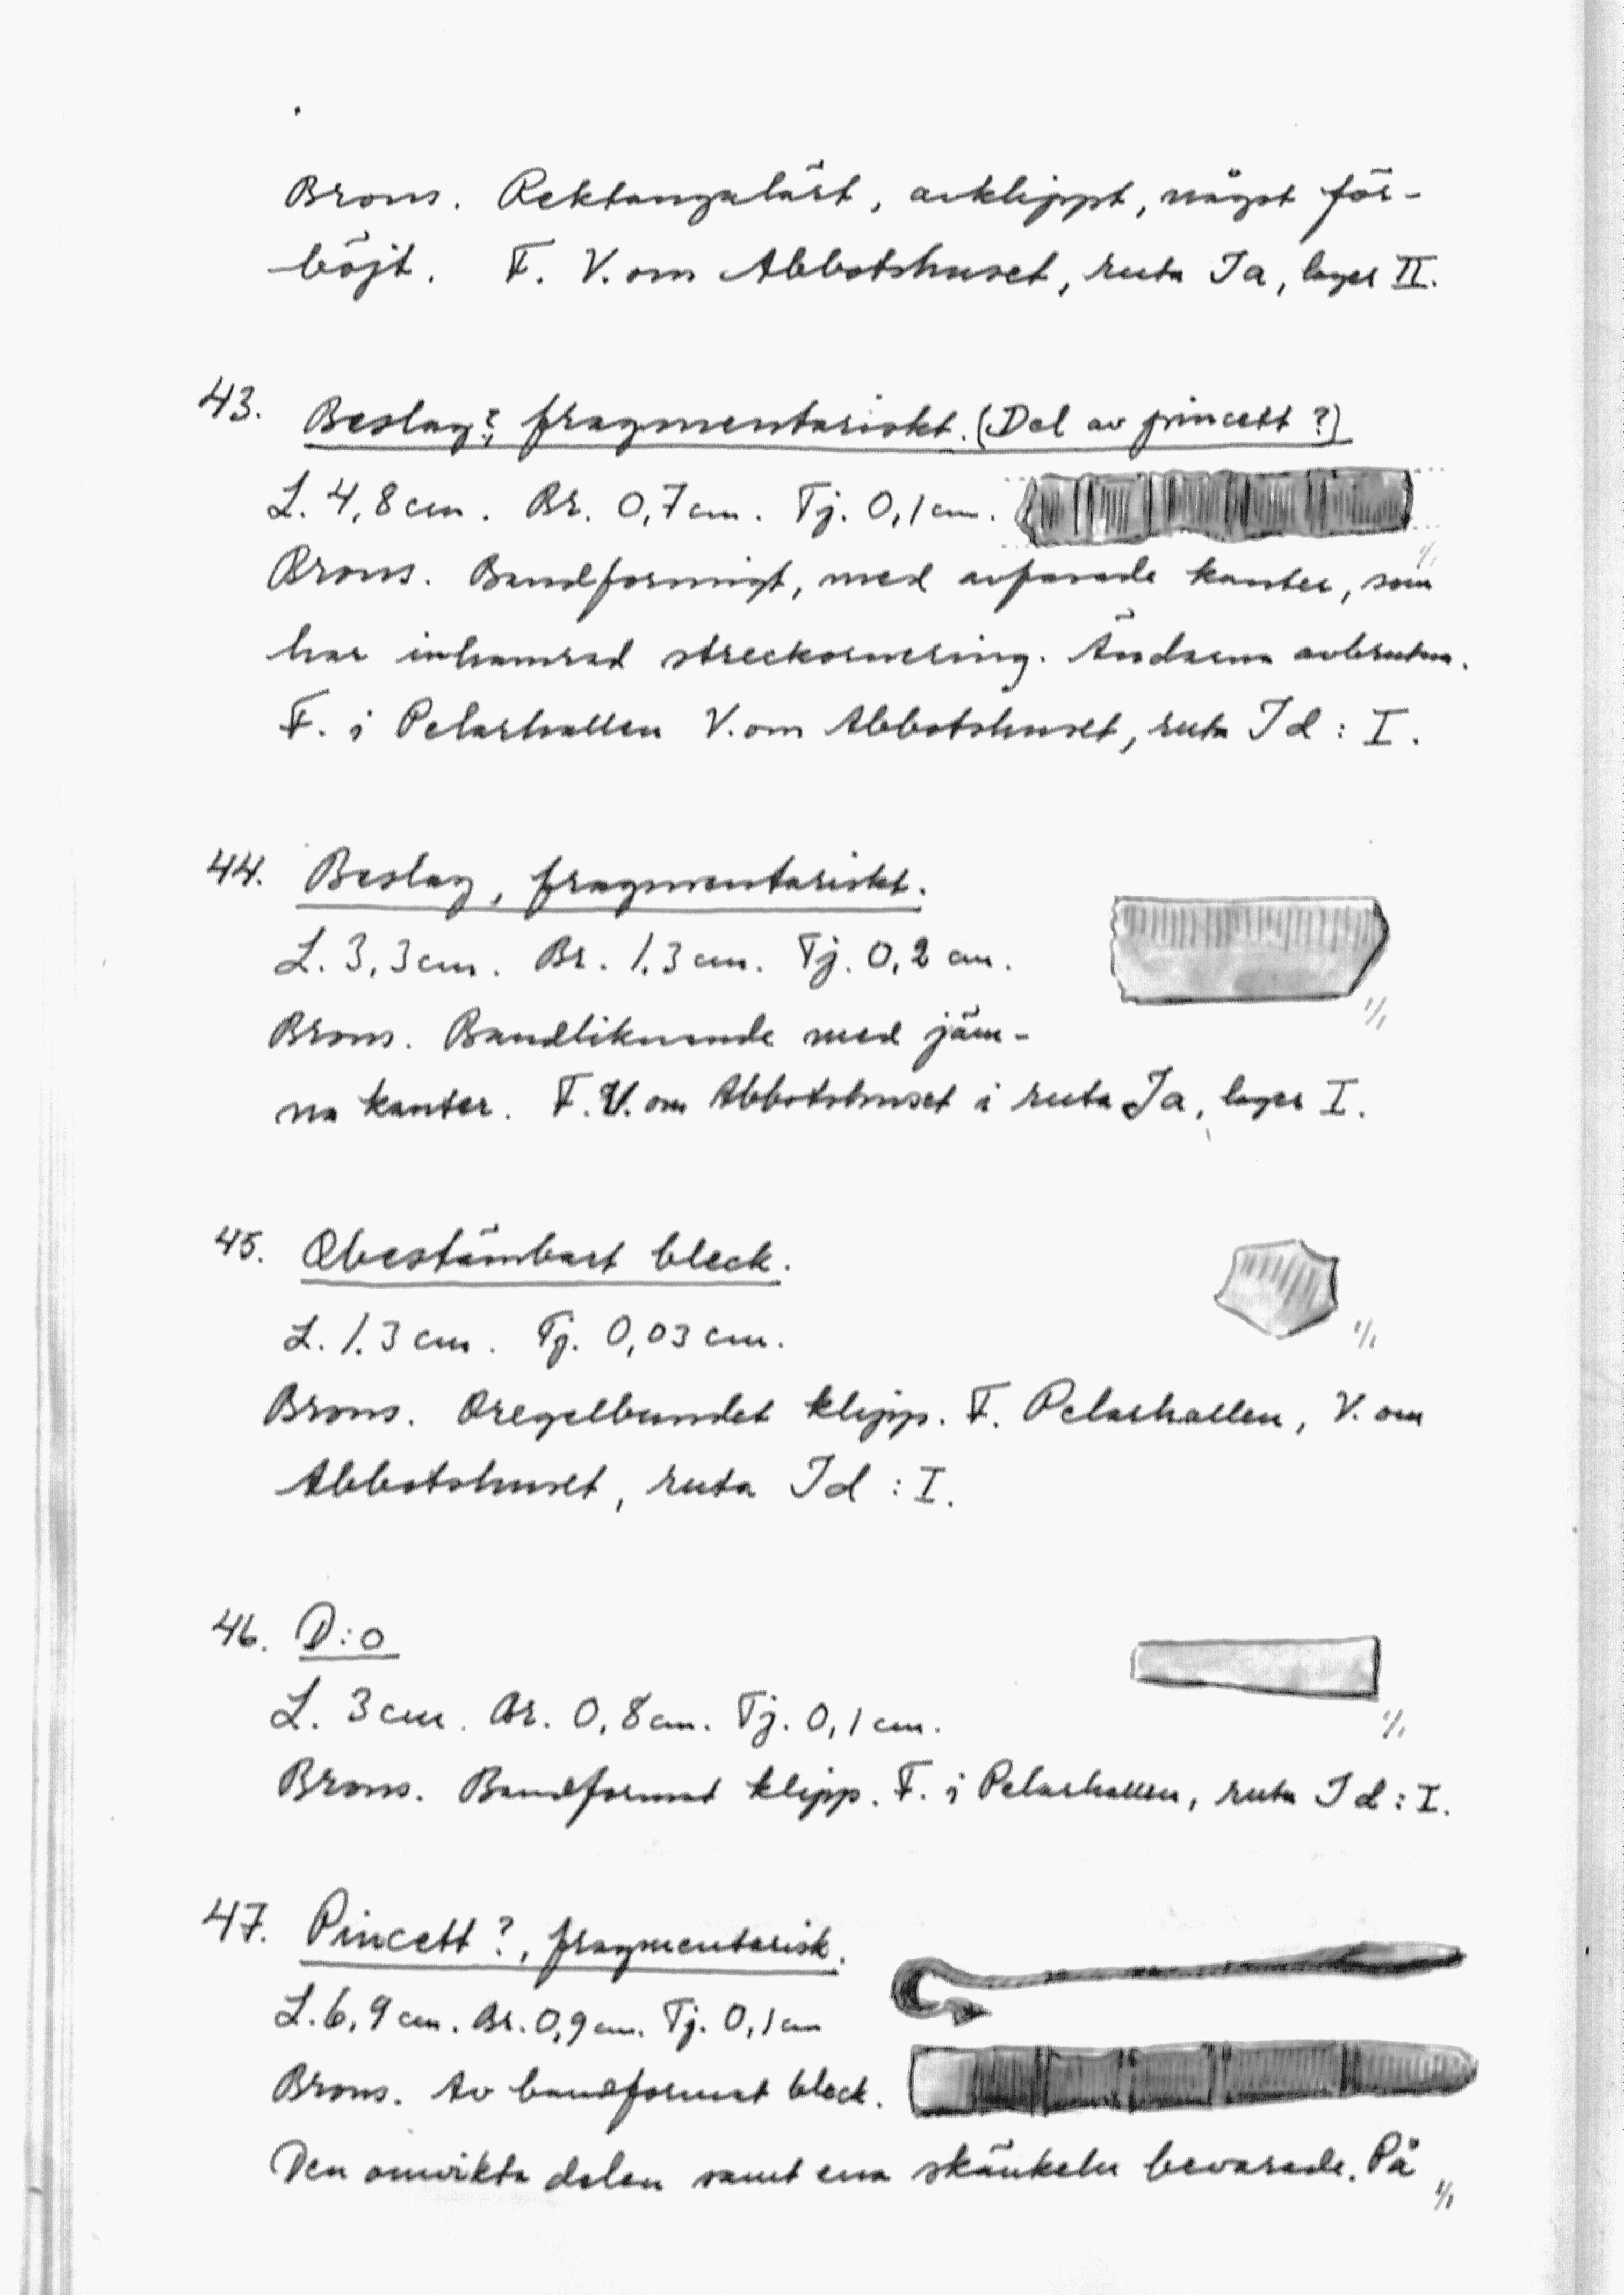 Brons. Rektangulärt, avklippt, något för-
böjt. F. V. om Abbotshuset, ruta Ja, lager II.
43. Beslag?, fragmentariskt. (Del av pincett?)
L. 4,8 cm. Br. 0,7 cm. Tj. 0,1 cm.
1/1
Brons. Bandformigt, med avfasade kanter, som
har inhamrad streckornering. Ändarna avbrutna.
F. i Pelarhallen V. om Abbotshuset, ruta Jd : I.
44. Beslag, fragmentariskt.
L. 3,3 cm. Br. 1,3 cm. Tj. 0,2 cm.
1/1
Brons. Bandliknande med jäm-
na kanter. F. V. om Abbotshuset i ruta Ja, lager I.
45. Obestämbart bleck.
L. 1,3 cm. Tj. 0,03 cm.
1/1
Brons. Oregelbundet klipp. F. Pelarhallen, V. om
Abbotshuset, ruta Jd : I.
46. D:o
L. 3 cm. Br. 0,8 cm. Tj. 0,1 cm.
1/1
Brons. Bandformat klipp. F. i Pelarhallen, ruta Jd : I.
47. Pincett?, fragmentarisk.
L. 6,9 cm. Br. 0,9 cm. Tj. 0,1 cm
Brons. Av bandformat bleck.
Den omvikta delen samt ena skänkeln bevarade. På
1/1